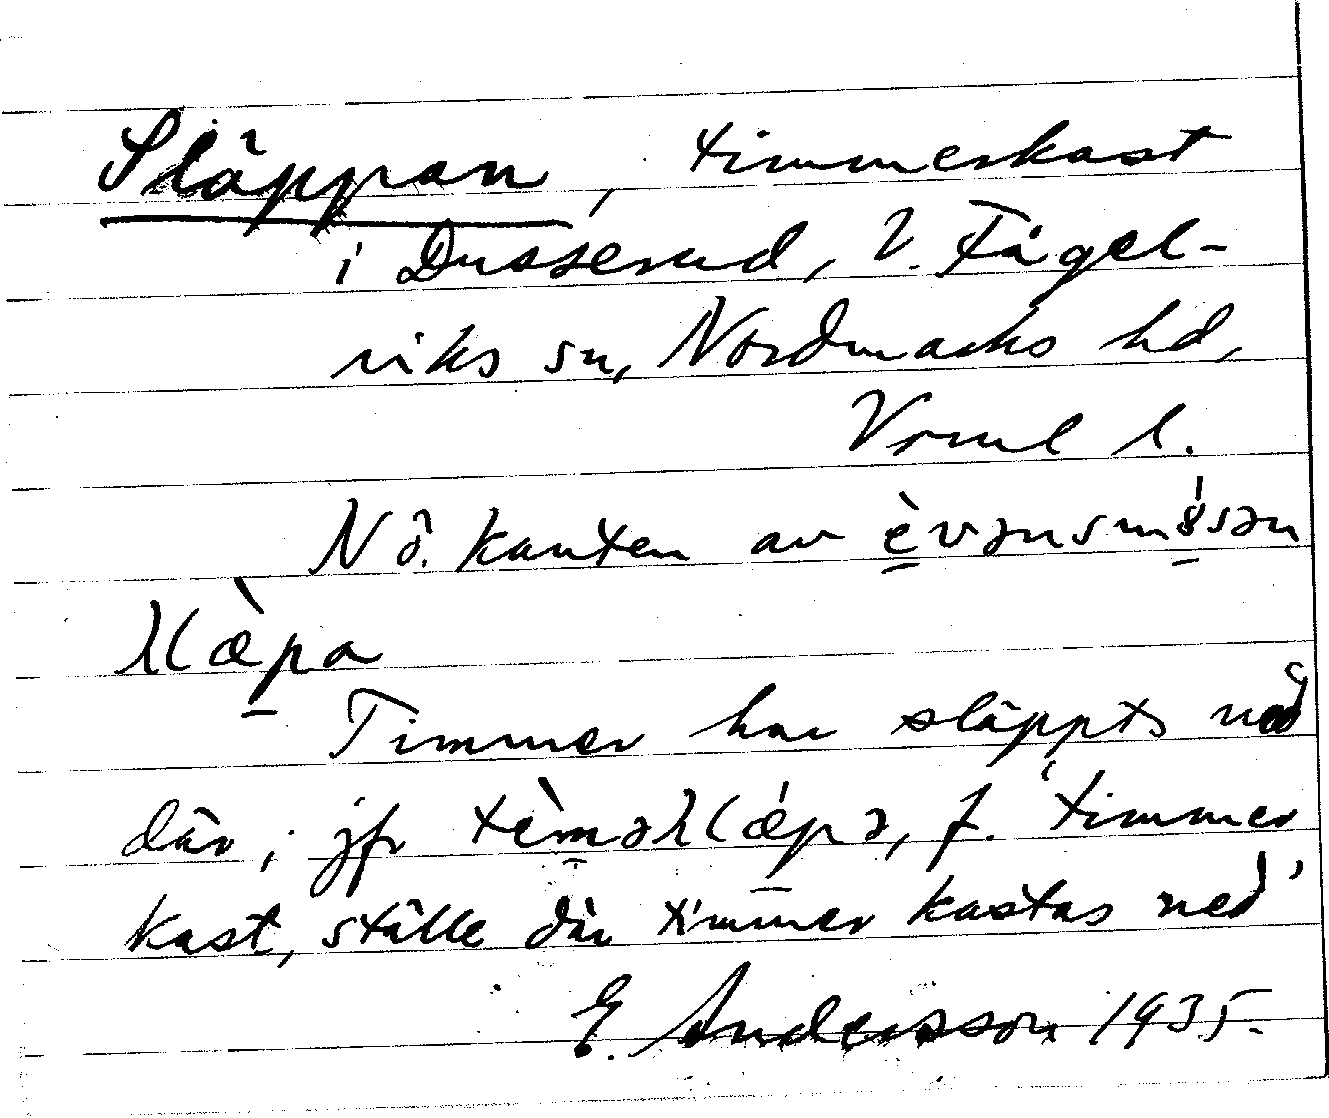 Släppan, timmerkast
i Dusserud, V. Fågel-
viks sn, Nordmarks hd,
Vrml l.
NÖ. kanten av
Timmer har släppts ned
där; jfr f. 'timmer
kast, ställe där timmer kastas ned'
E. Andersson 1935.